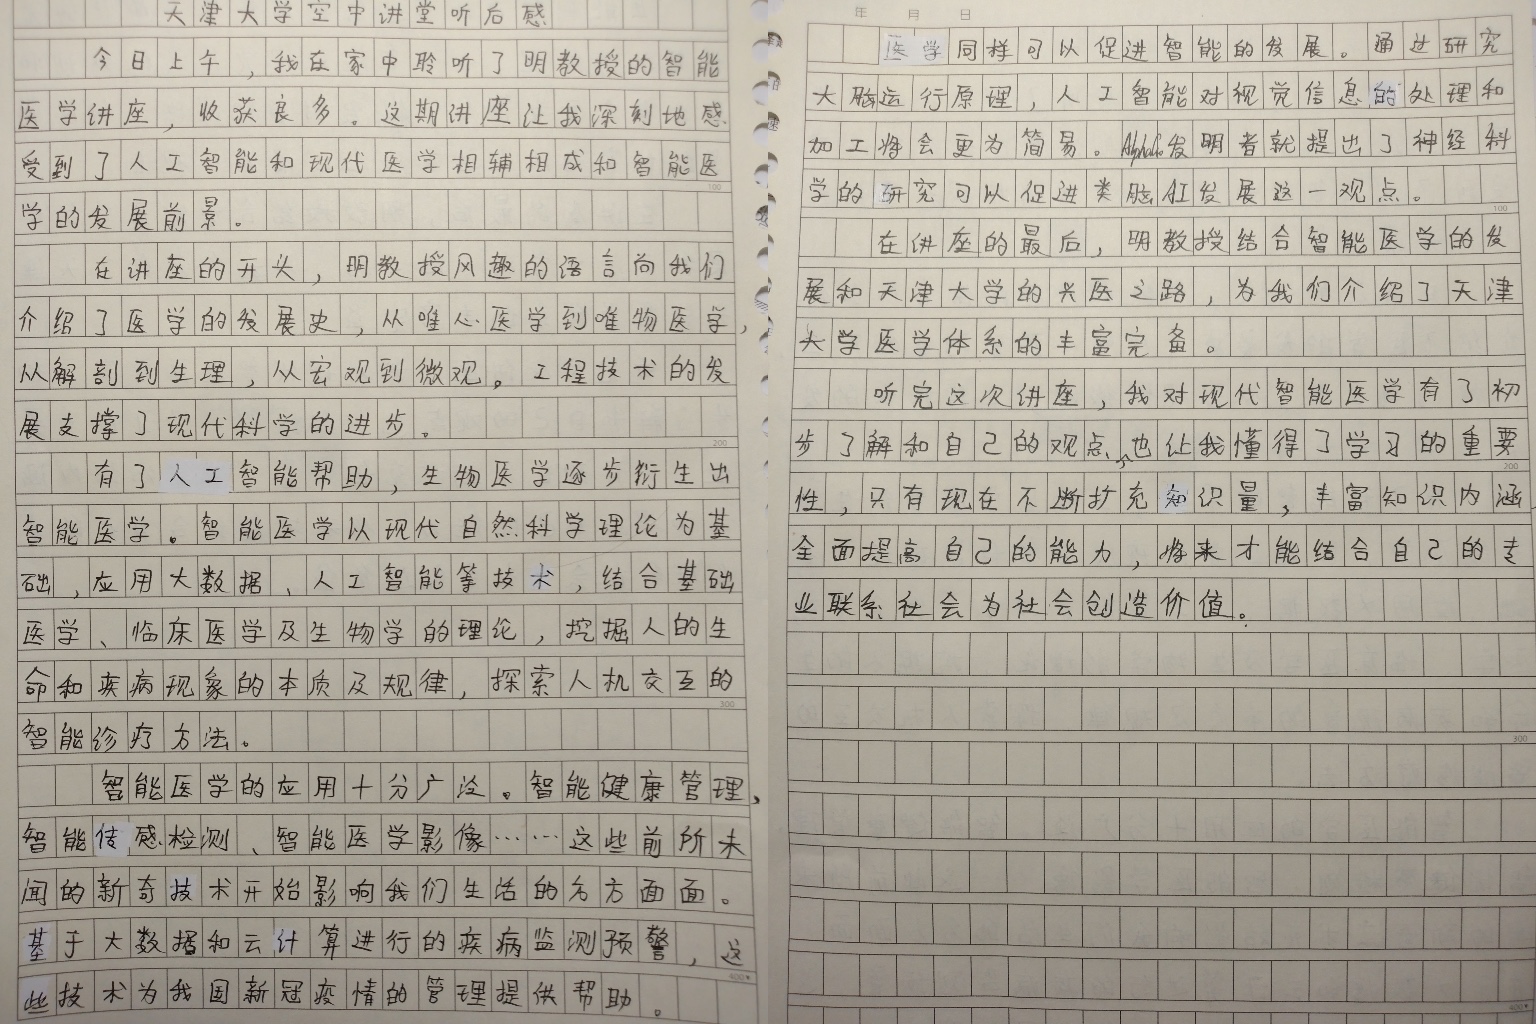 天津大学空中讲堂听后感
今日上午，我在家中聆听了明教授的智能
医学讲座，收获良多。这期讲座让我深刻地感
受到了人工智能和现代医学相辅相成和智能医
100
学的发展前景。
在讲座的开头，明教授风趣的语言向我们
介绍了医学的发展史，从唯心医学到唯物医学，
从解剖到生理，从宏观到微观。工程技术的发
展支撑了现代科学的进步。
200
有了人工智能帮助，生物医学逐步衍生出
智能医学。智能医学以现代自然科学理论为基
础，应用大数据、人工智能等技术，结合基础
医学、临床医学及生物学的理论，挖掘人的生
命和疾病现象的本质及规律，探索人机交互的
300
智能诊疗方法。
智能医学的应用十分广泛。智能健康管理，
智能传感检测、智能医学影像……这些前所未
闻的新奇技术开始影响我们生活的方方面面。
基于大数据和云计算进行的疾病监测预警，这
400
些技术为我国新冠疫情的管理提供帮助。
年 月 日
医学同样可以促进智能的发展。通过研究
大脑运行原理，人工智能对视觉信息的处理和
加工将会更为简易。AlphaGo发明者就提出了神经科
学的研究可以促进类脑AI发展这一观点。
100
在讲座的最后，明教授结合智能医学的发
展和天津大学的兴医之路，为我们介绍了天津
大学医学体系的丰富完备。
听完这次讲座，我对现代智能医学有了初
步了解和自己的观点，也让我懂得了学习的重要
200
性，只有现在不断扩充知识量，丰富知识内涵
全面提高自己的能力，将来才能结合自己的专
业联系社会为社会创造价值。
300
400